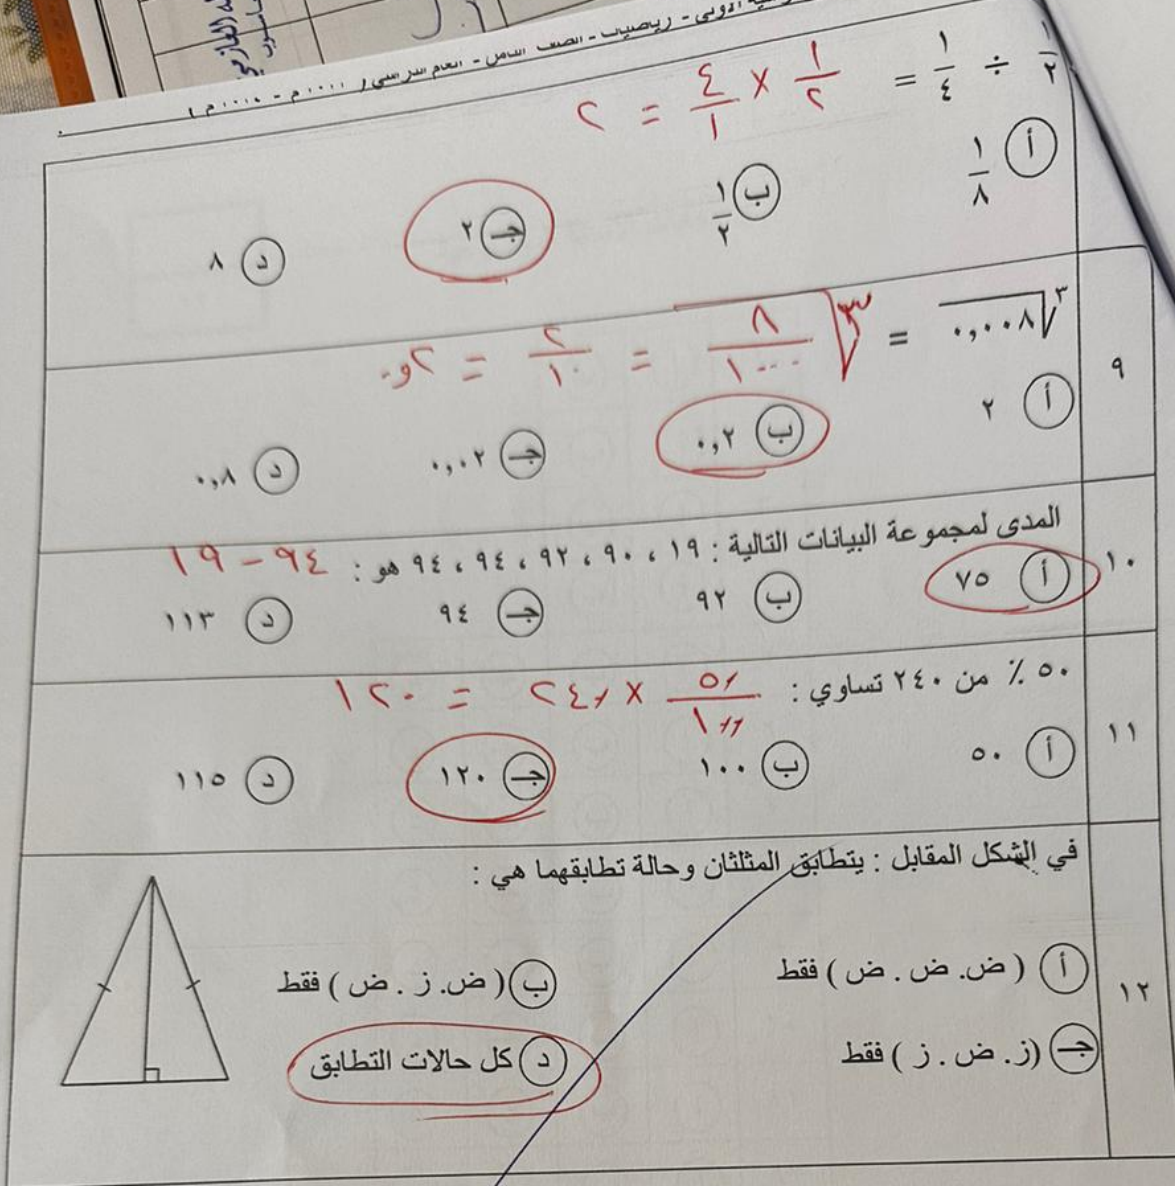 ١/٢ ÷ ١/٤ = ١/٢ × ٤/١ = ٢
أ ١/٨ ب ١/٢ جـ ٢ د ٨
٩
∛٠,٠٠٨ = ∛(٨/١٠٠٠) = ٢/١٠ = ٠,٢
أ ٢ ب ٠,٢ جـ ٠,٠٢ د ٠,٨
١٠
المدى لمجموعة البيانات التالية : ١٩ ، ٩٠ ، ٩٢ ، ٩٤ ، ٩٤ هو : ٩٤ – ١٩
أ ٧٥ ب ٩٢ جـ ٩٤ د ١١٣
١١
٥٠ ٪ من ٢٤٠ تساوي : ٥٠/١٠٠ × ٢٤٠ = ١٢٠
أ ٥٠ ب ١٠٠ جـ ١٢٠ د ١١٥
١٢
في الشكل المقابل : يتطابق المثلثان وحالة تطابقهما هي :
أ ( ض. ض . ض ) فقط ب ( ض. ز . ض ) فقط
جـ (ز . ض . ز ) فقط د كل حالات التطابق